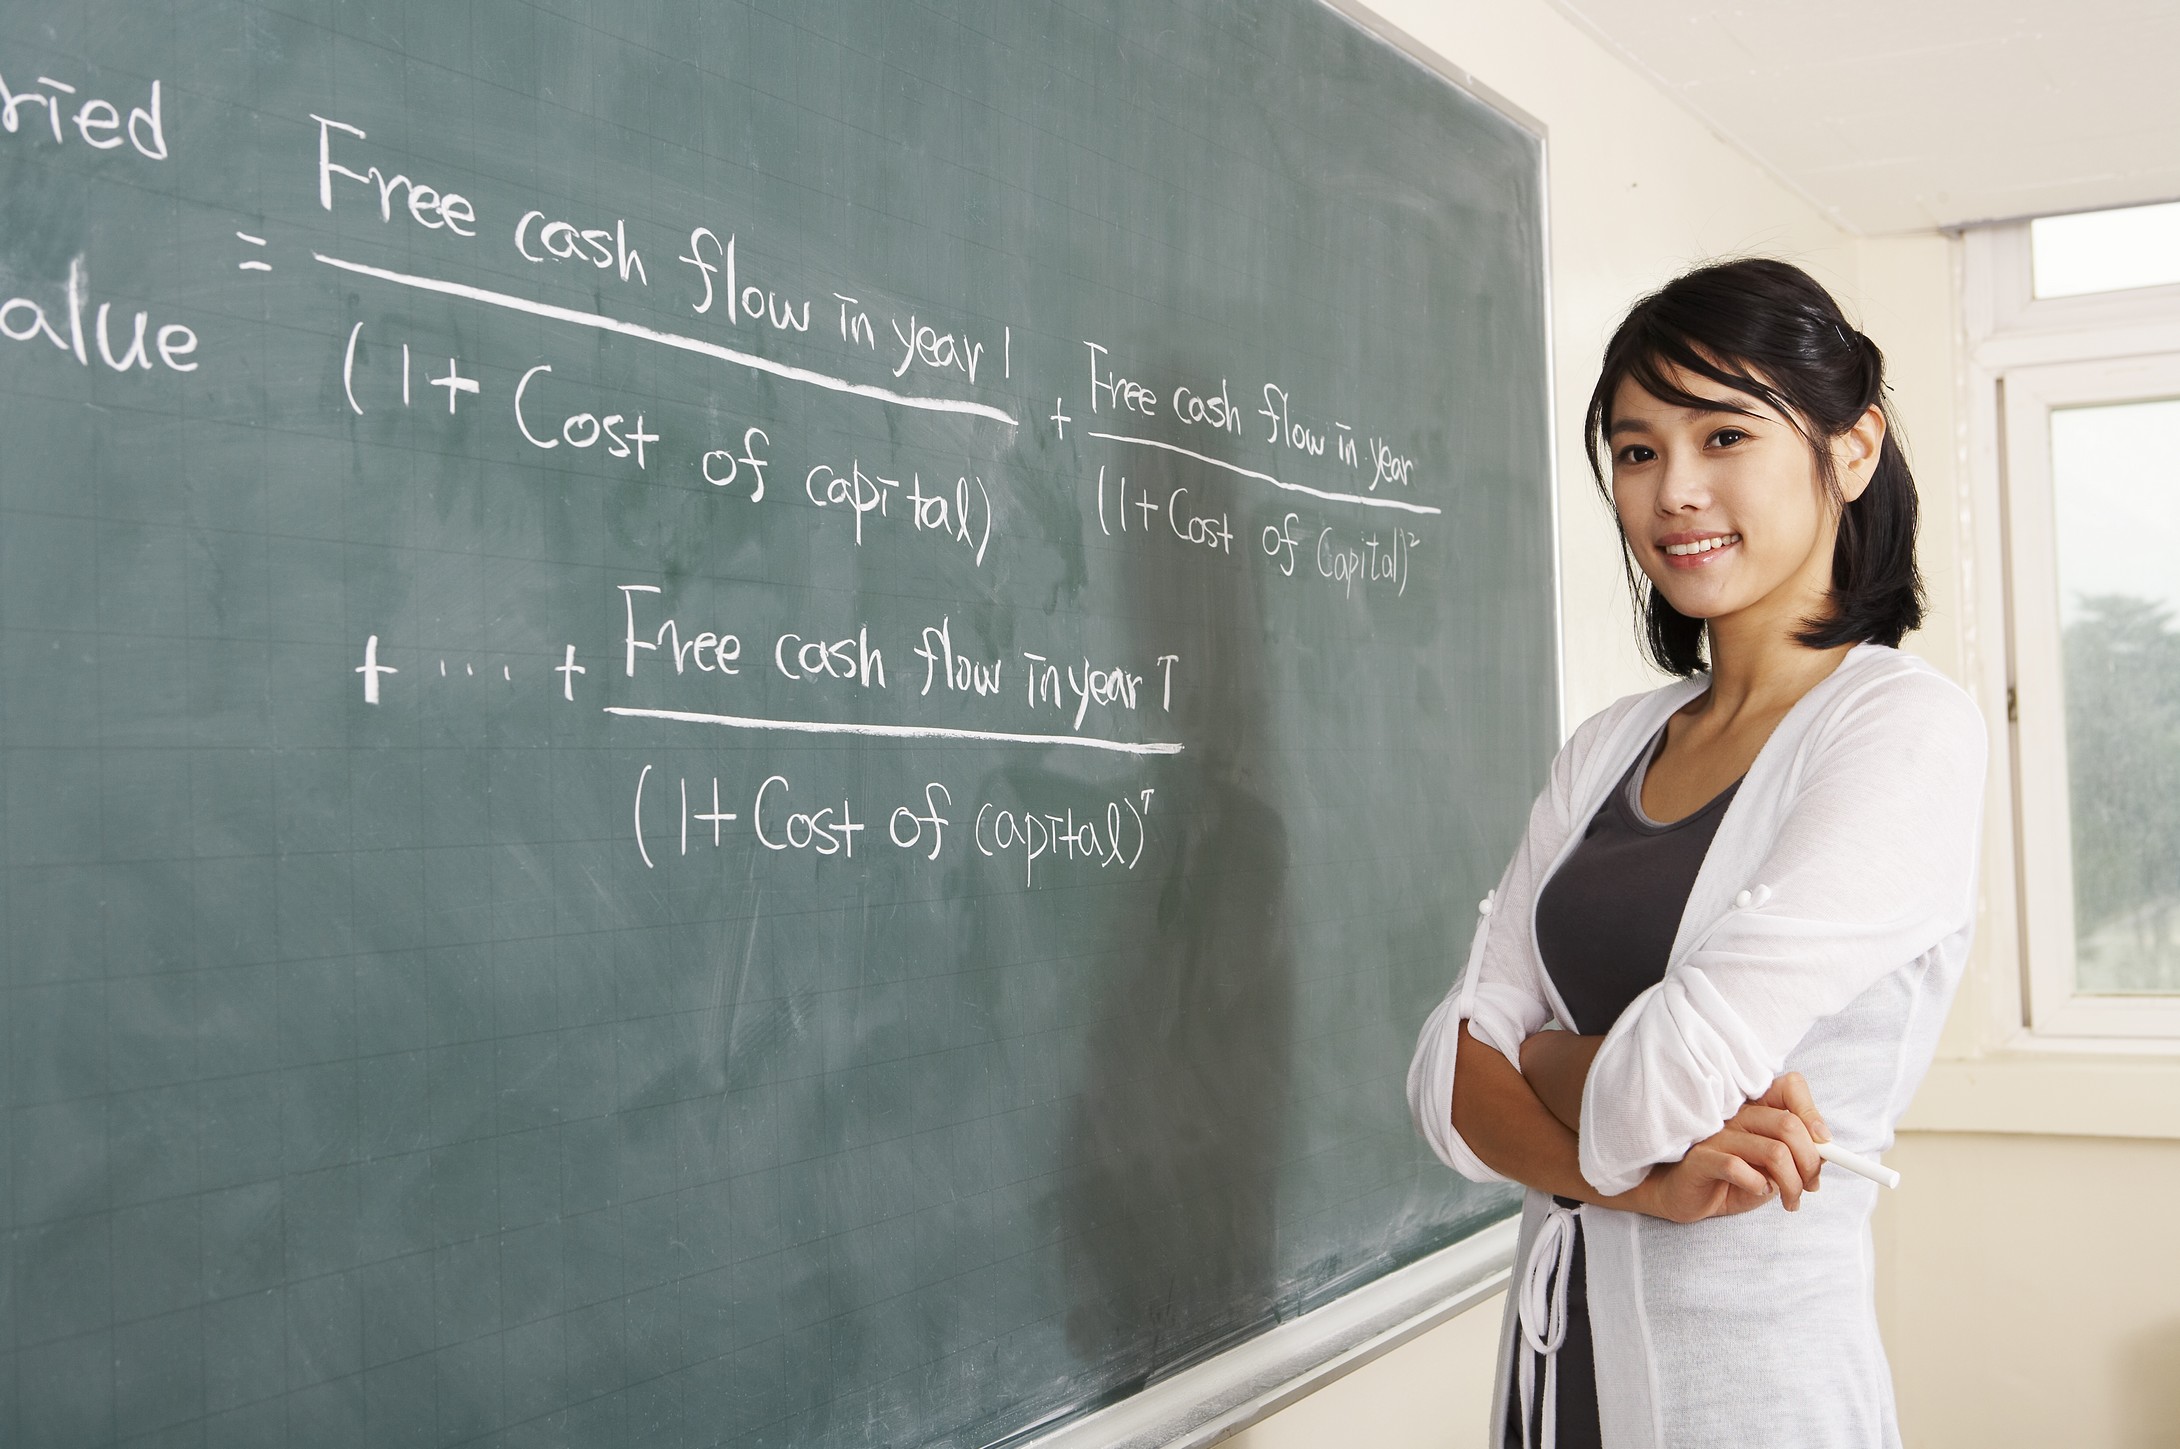 ried
alue
=
Free cash flow in year 1
(1 + Cost of capital)
+
Free cash flow in year
(1 + Cost of Capital)²
+ .... +
Free cash flow in year T
(1 + Cost of capital)ᵀ